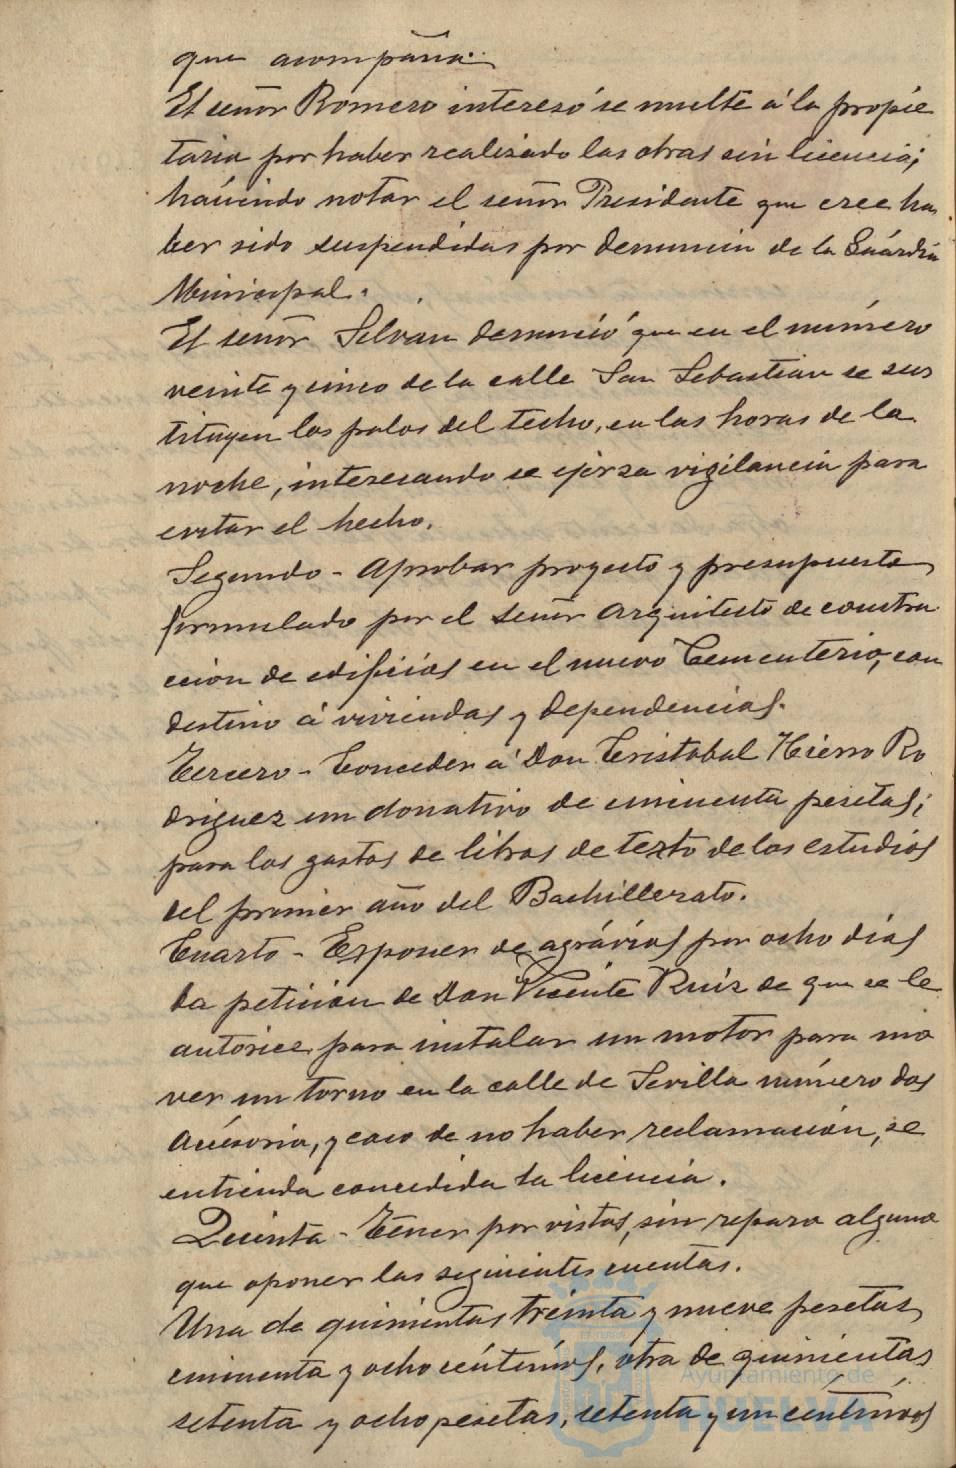 que acompaña.
El señor Romero interesó se multe á la propie
taria por haber realizado las obras sin licencia;
haciendo notar el señor Presidente que cree ha
ber sido suspendidas por denuncia de la Guárdia
Municipal.
El señor Silván denunció que en el número
veinte y cinco de la calle San Sebastian se sus
tituyen los palos del techo, en las horas de la
noche, interesando se ejerza vigilancia para
evitar el hecho.
Segundo - Aprobar proyecto y presupuesto
formulado por el señor Arquitecto de constru
cción de edificios en el nuevo Cementerio, con
destino á viviendas y dependencias.
Tercero - Conceder á Don Cristobal Hierro Ro
driguez un donativo de cincuenta pesetas;
para los gastos de libros de texto de los estudios
del primer año del Bachillerato.
Cuarto - Exponer de agrávios por ocho dias
la peticion de Don Vicente Ruiz de que se le
autorice para instalar un motor para mo
ver un torno en la calle de Sevilla número dos
accésoria, y caso de no haber reclamación, se
entienda concedida la licencia.
Quinta - Tener por vistas, sin reparo alguno
que oponer las seguientes cuentas.
Una de quinientas treinta y nueve pesetas,
cincuenta y ocho céntimos, otra de quinientas
setenta y ocho pesetas, setenta y un céntimos
Ayuntamiento de
HUELVA